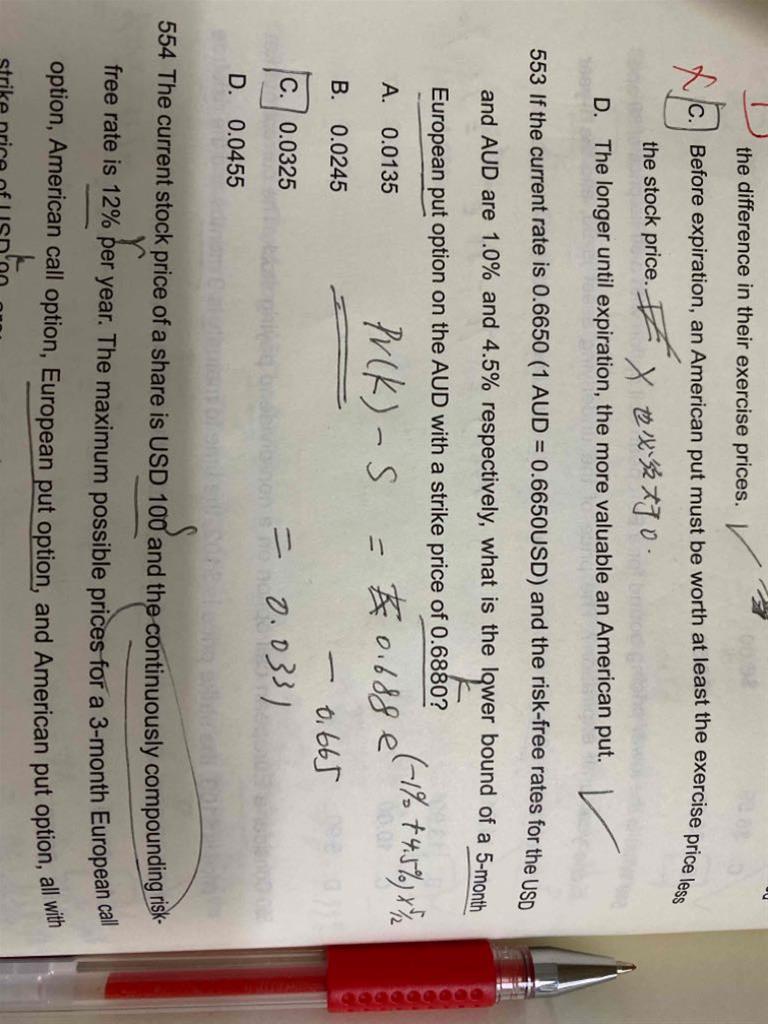 the difference in their exercise prices. ✓
C. Before expiration, an American put must be worth at least the exercise price less
the stock price. ×
D. The longer until expiration, the more valuable an American put. ✓
553 If the current rate is 0.6650 (1 AUD = 0.6650USD) and the risk-free rates for the USD
and AUD are 1.0% and 4.5% respectively, what is the lower bound of a 5-month
European put option on the AUD with a strike price of 0.6880?
K
A. 0.0135
B. 0.0245
C. 0.0325
D. 0.0455
PV(K) - S = 0.688 e^(-1% + 4.5%) × 5/12
- 0.665
= 0.0331
554 The current stock price of a share is USD 100 and the continuously compounding risk-
S
free rate is 12% per year. The maximum possible prices for a 3-month European call
r
option, American call option, European put option, and American put option, all with
strike price of USD 90 are:
K